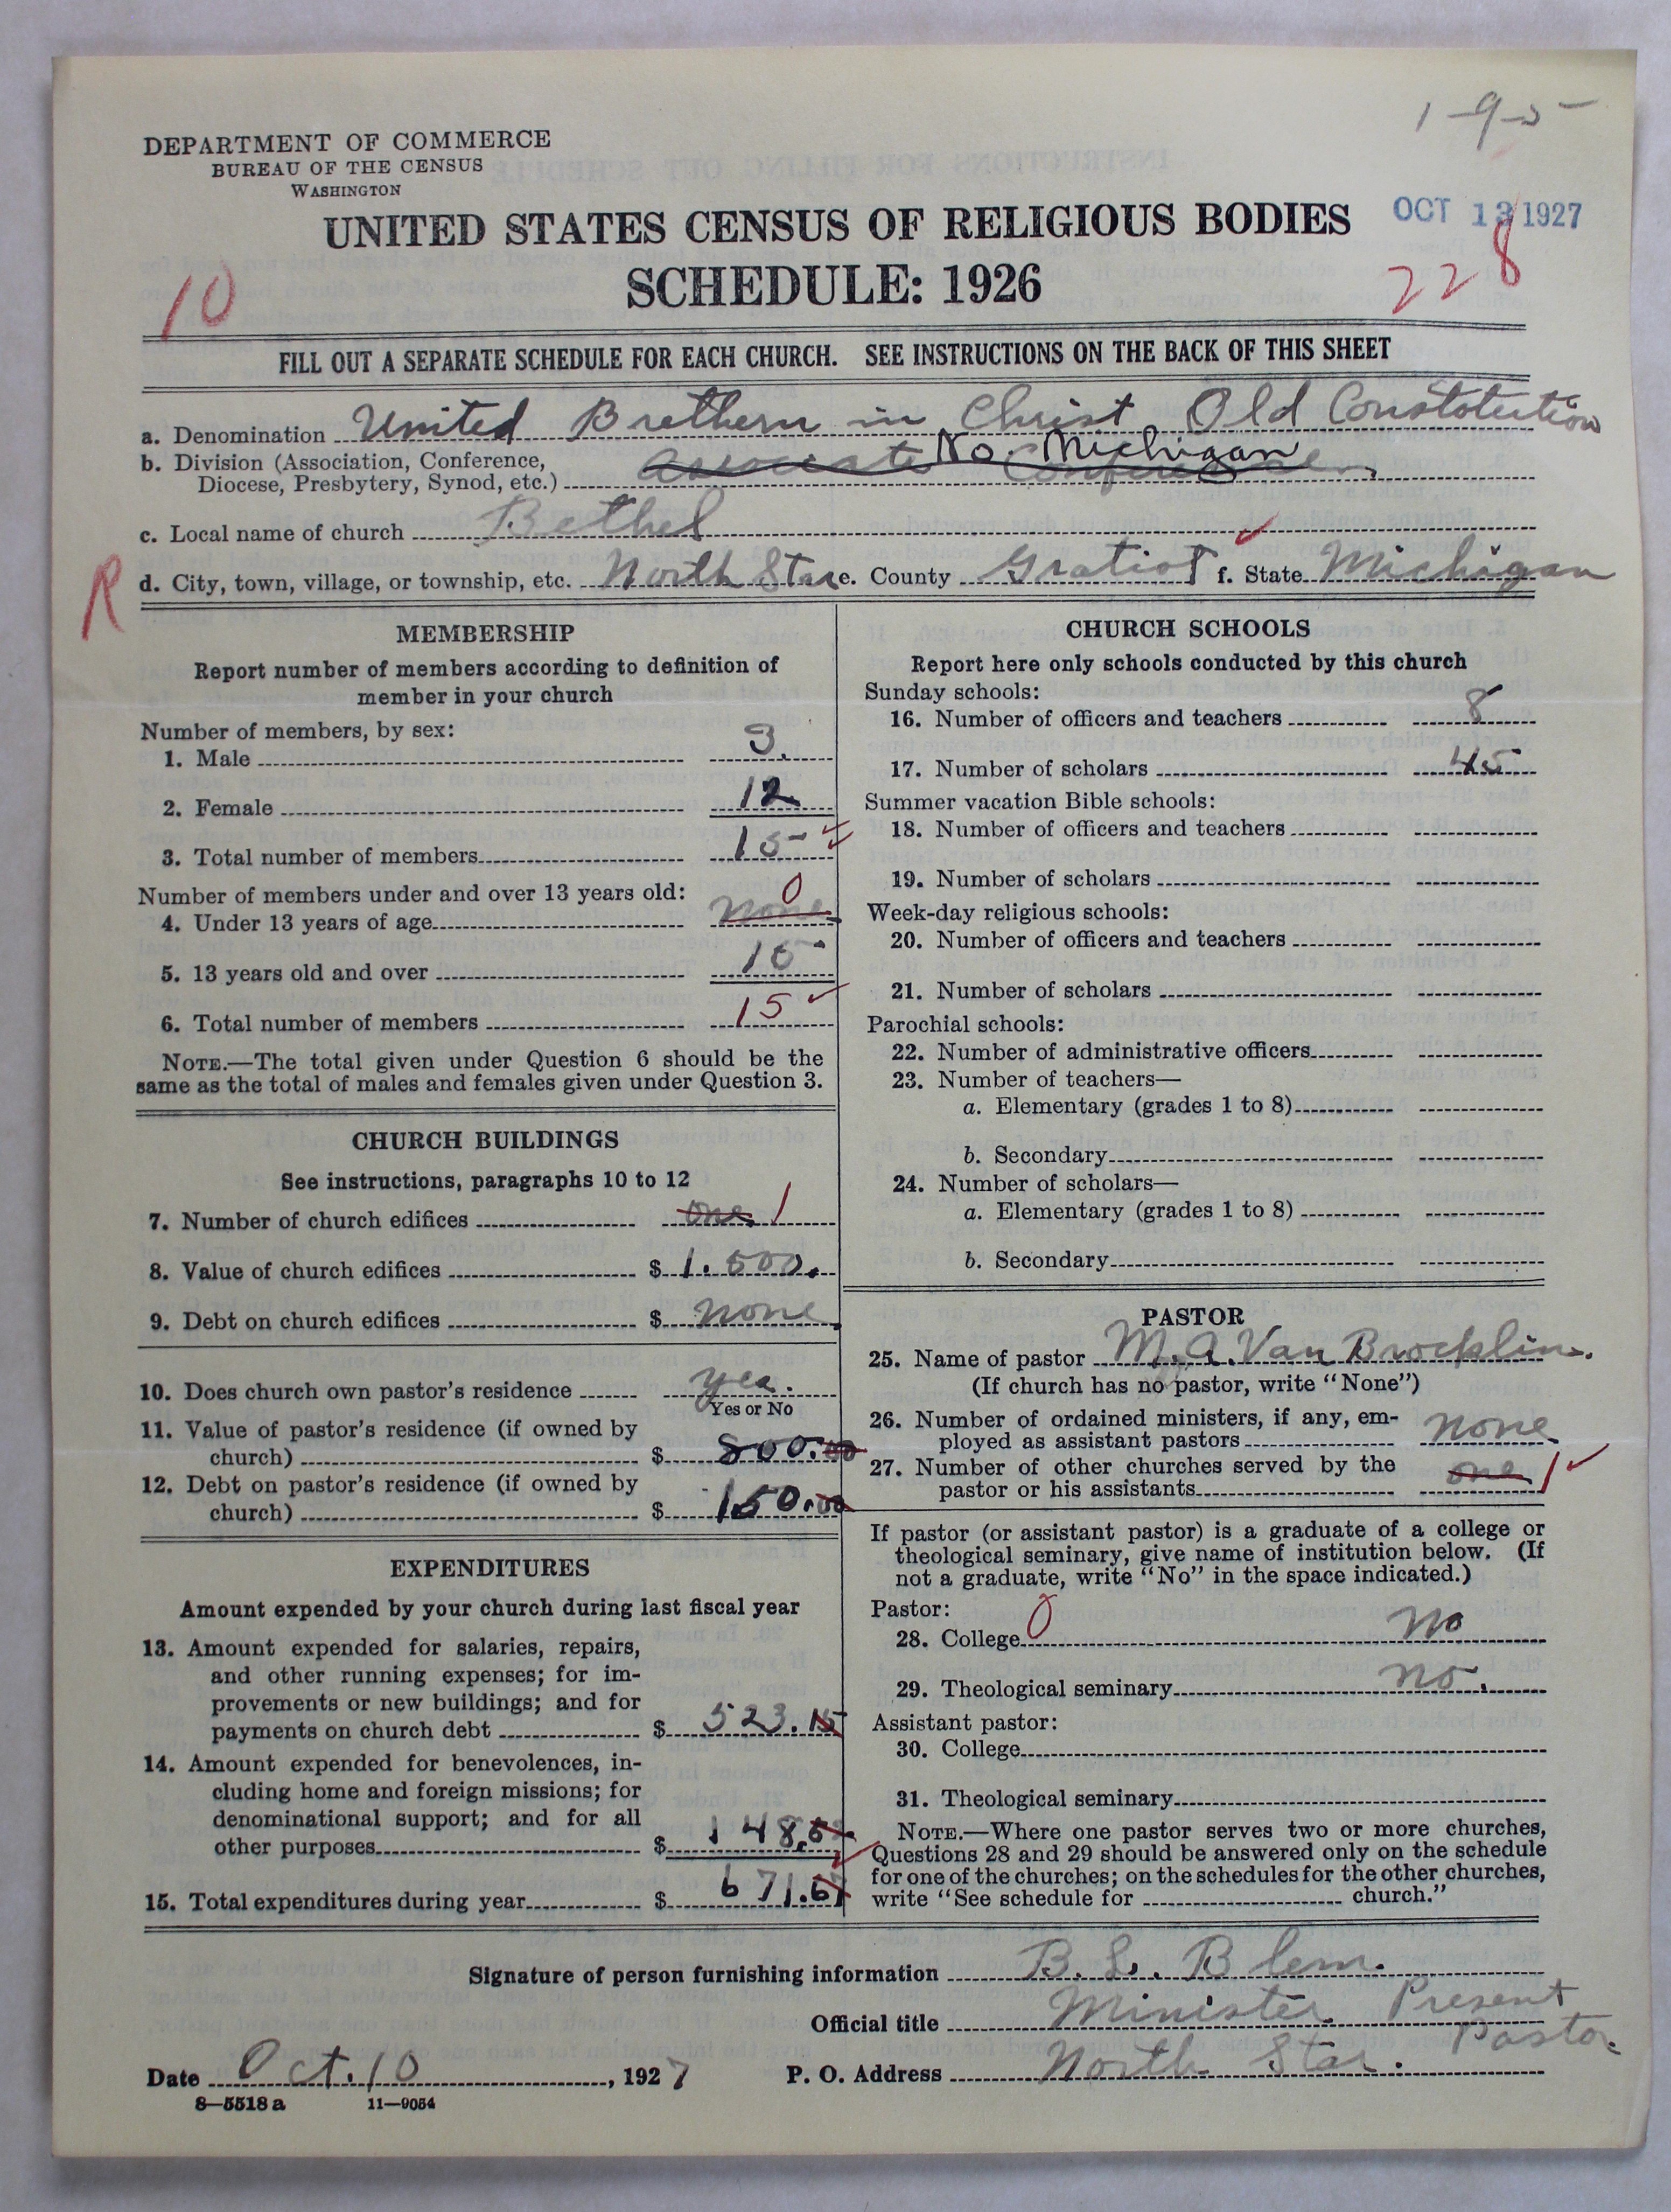 1-9-5
DEPARTMENT OF COMMERCE
BUREAU OF THE CENSUS
WASHINGTON
UNITED STATES CENSUS OF RELIGIOUS BODIES
OCT 13 1927
SCHEDULE: 1926
10
228
FILL OUT A SEPARATE SCHEDULE FOR EACH CHURCH. SEE INSTRUCTIONS ON THE BACK OF THIS SHEET
a. Denomination United Brethern in Christ Old Constotution
b. Division (Association, Conference, No. Michigan
Diocese, Presbytery, Synod, etc.) Associate Conference
c. Local name of church Bethel
R d. City, town, village, or township, etc. North Star e. County Gratiot f. State Michigan
MEMBERSHIP
Report number of members according to definition of
member in your church
Number of members, by sex:
1. Male 3.
2. Female 12
3. Total number of members 15
Number of members under and over 13 years old: 0
4. Under 13 years of age none
5. 13 years old and over 15
6. Total number of members 15
NOTE.—The total given under Question 6 should be the
same as the total of males and females given under Question 3.
CHURCH BUILDINGS
See instructions, paragraphs 10 to 12
7. Number of church edifices one 1
8. Value of church edifices $ 1.500.
9. Debt on church edifices $ none.
10. Does church own pastor's residence yes.
Yes or No
11. Value of pastor's residence (if owned by
church) $ 800.00
12. Debt on pastor's residence (if owned by
church) $ 150.00
EXPENDITURES
Amount expended by your church during last fiscal year
13. Amount expended for salaries, repairs,
and other running expenses; for im-
provements or new buildings; and for
payments on church debt $ 523.15
14. Amount expended for benevolences, in-
cluding home and foreign missions; for
denominational support; and for all
other purposes $ 148.52
15. Total expenditures during year $ 671.67
CHURCH SCHOOLS
Report here only schools conducted by this church
Sunday schools:
16. Number of officers and teachers 8
17. Number of scholars 45
Summer vacation Bible schools:
18. Number of officers and teachers
19. Number of scholars
Week-day religious schools:
20. Number of officers and teachers
21. Number of scholars
Parochial schools:
22. Number of administrative officers
23. Number of teachers—
a. Elementary (grades 1 to 8)
b. Secondary
24. Number of scholars—
a. Elementary (grades 1 to 8)
b. Secondary
PASTOR
25. Name of pastor M. A. Van Brocklin.
(If church has no pastor, write "None")
26. Number of ordained ministers, if any, em-
ployed as assistant pastors none
27. Number of other churches served by the
pastor or his assistants one 1
If pastor (or assistant pastor) is a graduate of a college or
theological seminary, give name of institution below. (If
not a graduate, write "No" in the space indicated.)
Pastor:
28. College 0 no
29. Theological seminary no.
Assistant pastor:
30. College
31. Theological seminary
NOTE.—Where one pastor serves two or more churches,
Questions 28 and 29 should be answered only on the schedule
for one of the churches; on the schedules for the other churches,
write "See schedule for church."
Signature of person furnishing information B. L. Blem.
Official title Minister. Present
Pastor.
Date Oct. 10, 1927 P. O. Address North Star.
8—5518 a 11—9054